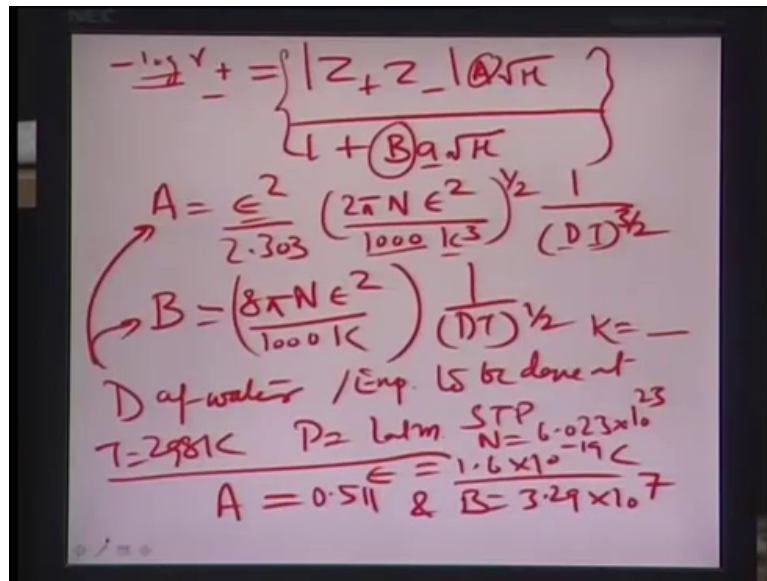 NEC
-log γ± = { |Z+ Z-| A√μ / 1 + B a √μ }
A = ε² / 2.303 (2πN ε² / 1000 K³)^1/2 1 / (DT)^3/2
B = (8πN ε² / 1000 K) 1 / (DT)^1/2 K = —
D of water / Exp. is to be done at
T = 298K P = 1 atm. STP N = 6.023×10^23
ε = 1.6×10^-19 C
A = 0.511 & B = 3.29×10^7